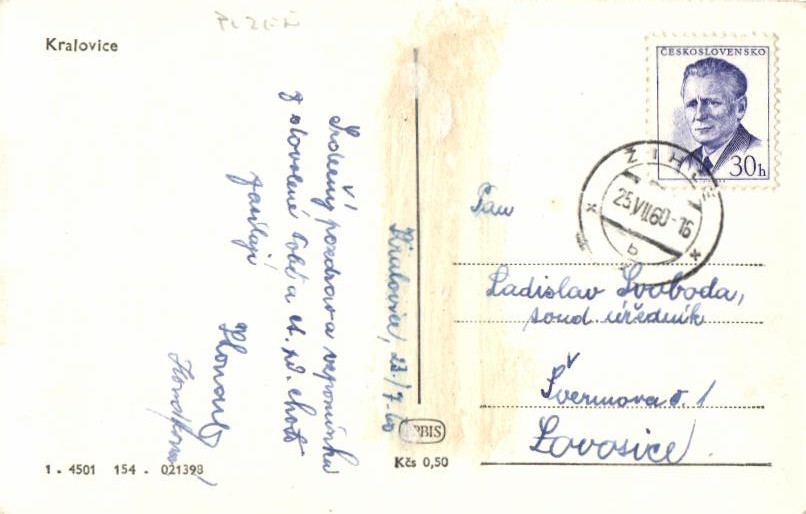 PLZEŇ
Kralovice
Srdečný pozdrav a vzpomínku
z dovolené Tobě a ct. pí. choti
zasílají
Kralovice, 23./7.60
ČESKOSLOVENSKO
30h
ŽIHLE
25.VII.60-16
b
Pan
Ladislav Svoboda,
soud. úředník
Švermova č. 1
Lovosice
ORBIS
1 - 4501 154 - 021398
Kčs 0,50